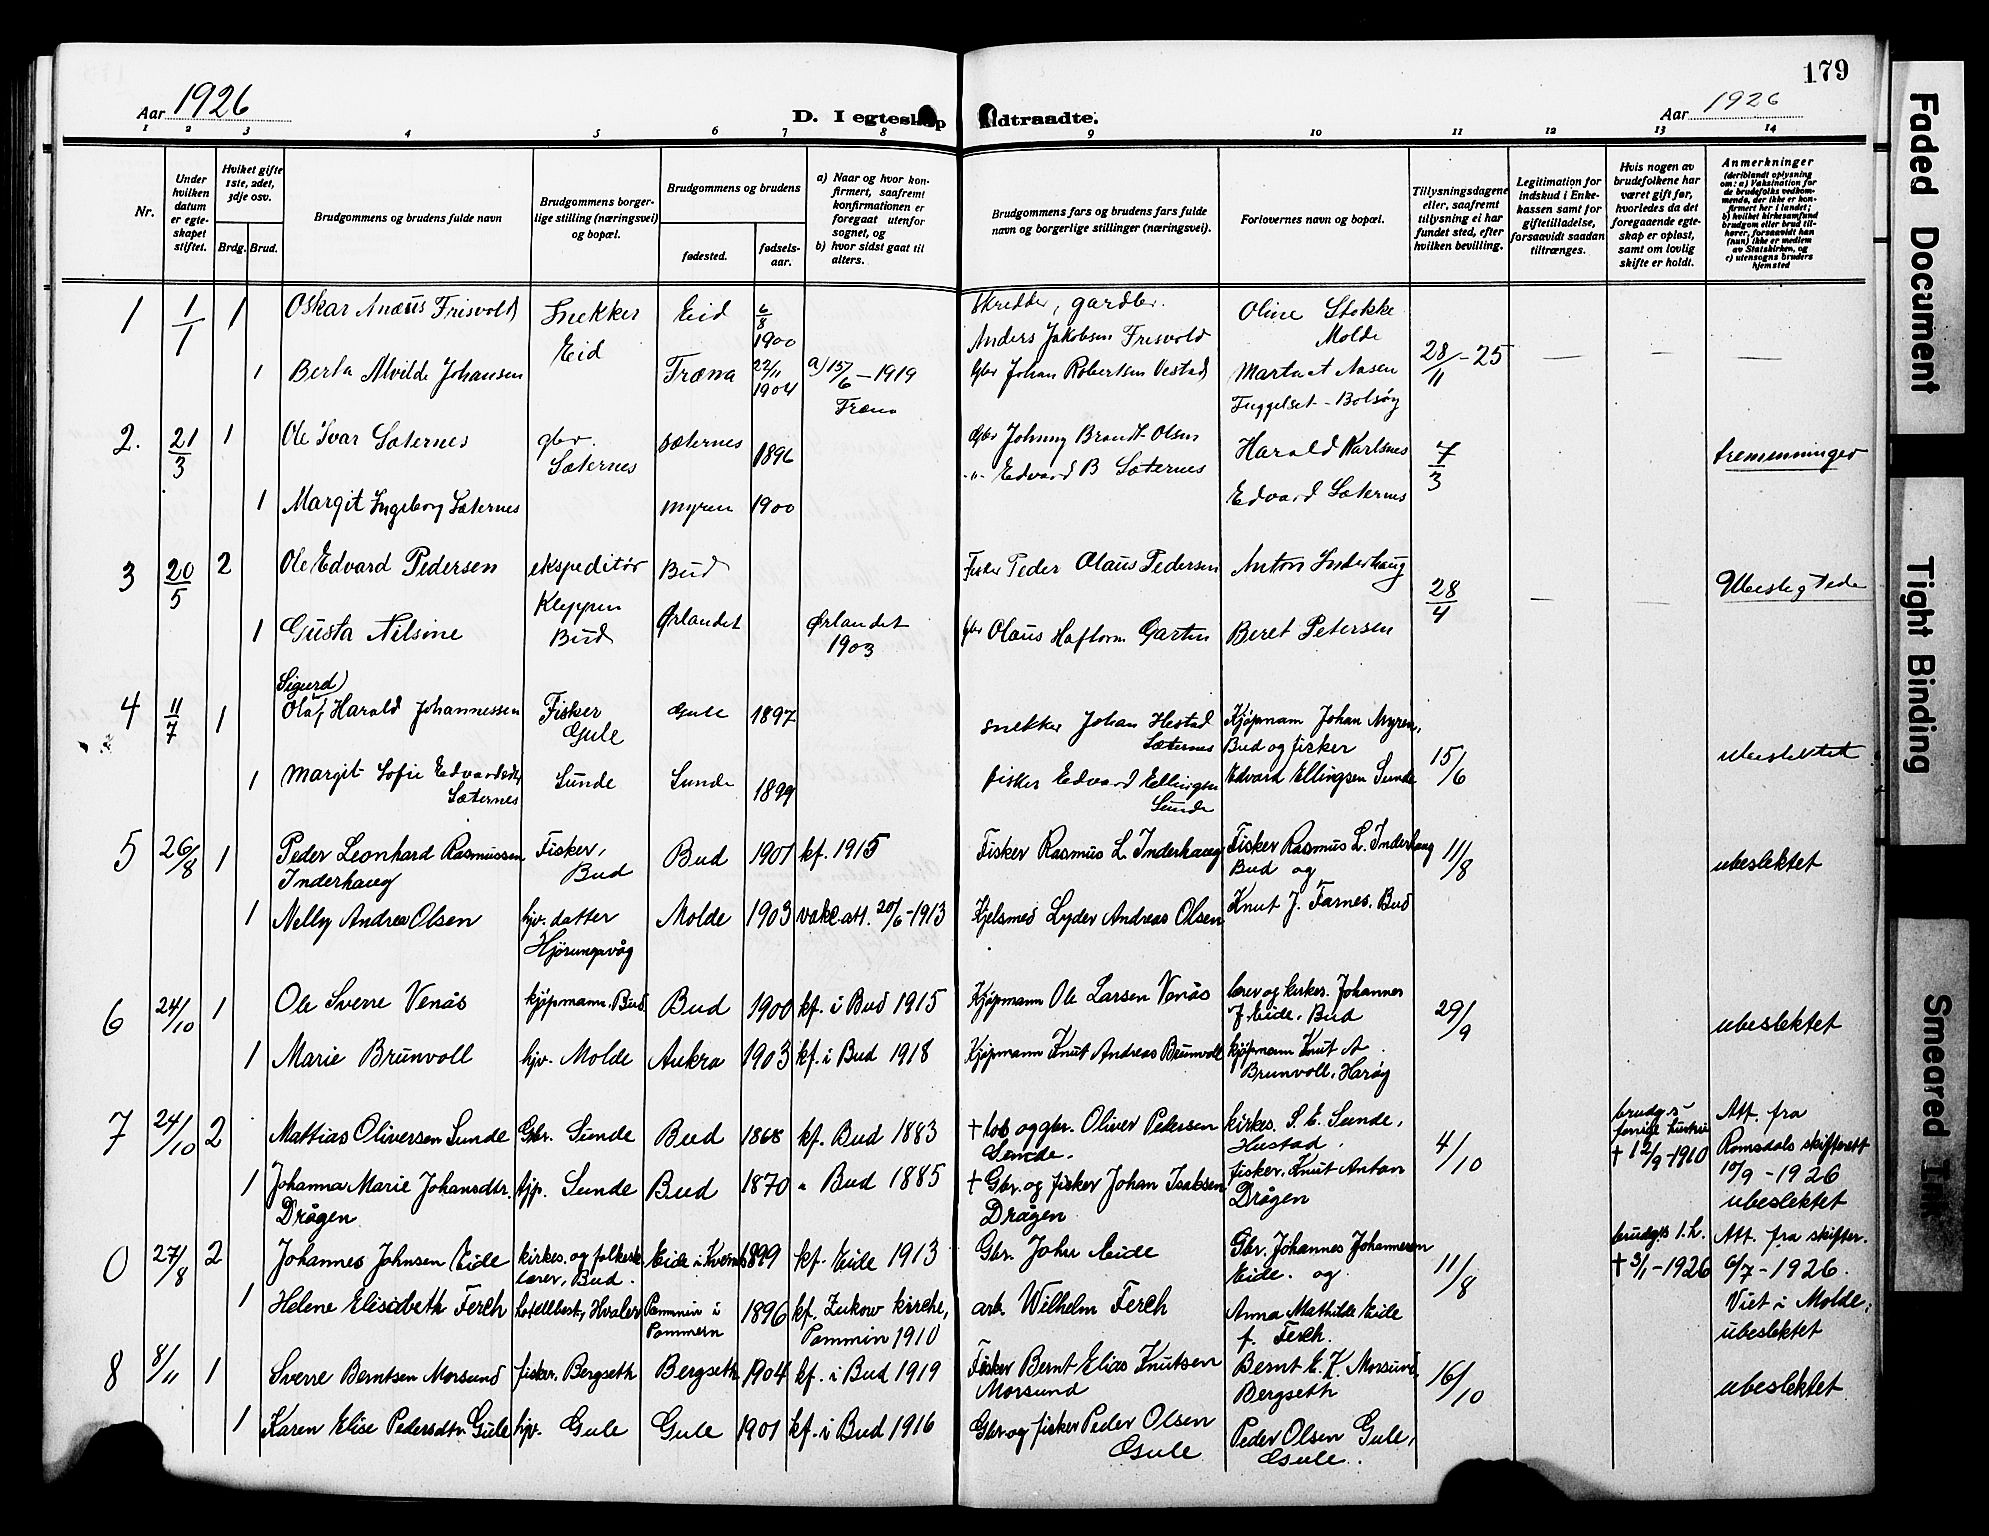 179
Aar 1926
D. I egteskap indtraadte.
Aar 1926
1 2 3 4 5 6 7 8 9 10 11 12 13 14
Nr.
Under hvilken datum er egteskapet stiftet.
Hvilket gifte 1ste, 2det, 3dje osv.
Brdg. Brud.
Brudgommens og brudens fulde navn
Brudgommens borgerlige stilling (næringsvei) og bopæl.
Brudgommens og brudens
fødested.
fødselsaar.
a) Naar og hvor konfirmert, saafremt konfirmationen er foregaat utenfor sognet, og
b) hvor sidst gaat til alters.
Brudgommens fars og brudens fars fulde navn og borgerlige stillinger (næringsvei).
Forlovernes navn og bopæl.
Tillysningsdagene eller, saafremt tillysning ei har fundet sted, efter hvilken bevilling.
Legitimation for indskud i Enkekassen samt for giftetilladelse, forsaavidt saadan tiltrænges.
Hvis nogen av brudefolkene har været gift før, hvorledes da det foregaaende egteskap er opløst, samt om lovlig skifte er holdt.
Anmerkninger
(deriblandt oplysning om: a) Vaksination for de brudefolks vedkommende, der ikke er konfirmert her i landet;
b) hvilket kirkesamfund brudgom eller brud tilhører, forsaavidt han (hun) ikke er medlem av Statskirken, og
c) utensogns bruders hjemsted
1 1/1 1 Oskar Anæus Frisvold Snekker Eid Eid 6/8 1900 Skredder, gardbr. Anders Jakobsen Frisvold Oline Stokke Molde 28/11-25 — — —
1 Berta Alvilde Johansen Fræna 22/11 1904 a) 15/6-1919 Fræna Gbr Johan Robertsen Vestad Marta A Aasen Fuggelset - Bolsøy
2. 21/3 1 Ole Ivar Sæternes gbr. Sæternes Sæternes 1896 Gbr Johnny Brandt Olsen Harald Karlsnes 7/3 tremenninger
1 Margit Ingeborg Sæternes Myren 1900 -"- Edvard B Sæternes Edvard Sæternes
3 20/5 2 Ole Edvard Pedersen ekspeditør Kleppen Bud Bud Fisker Peder Olaus Pedersen Anton Inderhaug 28/4 — — Ubeslegtede
1 Gusta Nilsine Ørlandet Ørlandet 1903 gbr Olaus Hafton Garten Beret Petersen
4 11/7 1 Sigurd Olaf Harald Johannessen Fisker Gule Gule 1897 snekker Johan Hestad Sæternes Kjøpmann Johan Myren, Bud og fisker 15/6 ubeslektet
1 Margit Sofie Edvardsdtr Sæternes Sunde Sunde 1899 fisker Edvard Ellingsen Sunde Edvard Ellingsen Sunde
5 26/8 1 Peder Leonhard Rasmussen Inderhaug Fisker, Bud Bud 1901 kf. 1915 Fisker Rasmus L. Inderhaug Fisker Rasmus L. Inderhaug Bud og 11/8 ubeslektet
1 Nelly Andrea Olsen hjv. datter Hjørungavåg Molde 1903 vakc. att. 20/6-1913 Kjelsmed Lyder Andreas Olsen Knut J. Farnes. Bud
6 24/10 1 Ole Sverre Venås kjøpmann. Bud Bud 1900 kf. i Bud 1915 Kjøpmann Ole Larsen Venås lærer og kirkes. Johannes J. Eide. Bud 29/9 ubeslektet
1 Marie Brunvoll hjv. Molde Aukra 1903 kf. i Bud 1918 Kjøpmann Knut Andreas Brunvoll kjøpmann Knut A. Brunvoll. Harøy
7 24/10 2 Mattias Oliversen Sunde Gbr. Sunde Bud 1868 kf. Bud 1883 + los og gbr. Oliver Pedersen Sunde. kirkes. S. E. Sunde, Hustad. 4/10 brudg.s forrige hustru + 12/9-1910 Att. fra Romsdals skifterett 10/9-1926 ubeslektet
1 Johanna Marie Johansdtr. Drågen tjp. Sunde Bud 1870 " Bud 1885 + Gbr. og fisker Johan Isaksen Drågen fisker. Knut Anton Drågen
0 27/8 2 Johannes Johnsen Eide kirkes. og folkeskolelærer, Bud. Eide i Kvernes 1899 kf. Eide 1913 Gbr. John Eide Gbr. Johannes Johannesen Eide. og 11/8 brudgs 1. h. + 3/1-1926 Att. fra skifter. 6/7-1926. Viet i Molde; ubeslektet
1 Helene Elisabeth Ferch Hvaler Pammin i Pommern 1896 kf. Zukow kirche, Pammin 1910 arb. Wilhelm Ferch Anna Mathilde Eide f. Ferch.
8 8/11 1 Sverre Berntsen Morsund fisker. Bergseth Bergseth 1904 kf. i Bud 1919 Fisker Bernt Elias Knutsen Morsund Bernt E. K. Morsund, Bergseth 16/10 ubeslektet
1 Karen Elise Pedersdtr. Gule hjv. Gule Gule 1901 kf. i Bud 1916 Gbr og fisker Peder Olsen Gule Peder Olsen Gule, Gule.
Faded Document
Tight Binding
Smeared Ink